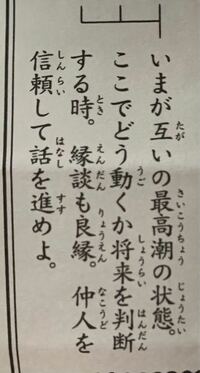 いまが互いの最高潮の状態。
ここでどう動くか将来を判断
する時。縁談も良縁。仲人を
信頼して話を進めよ。